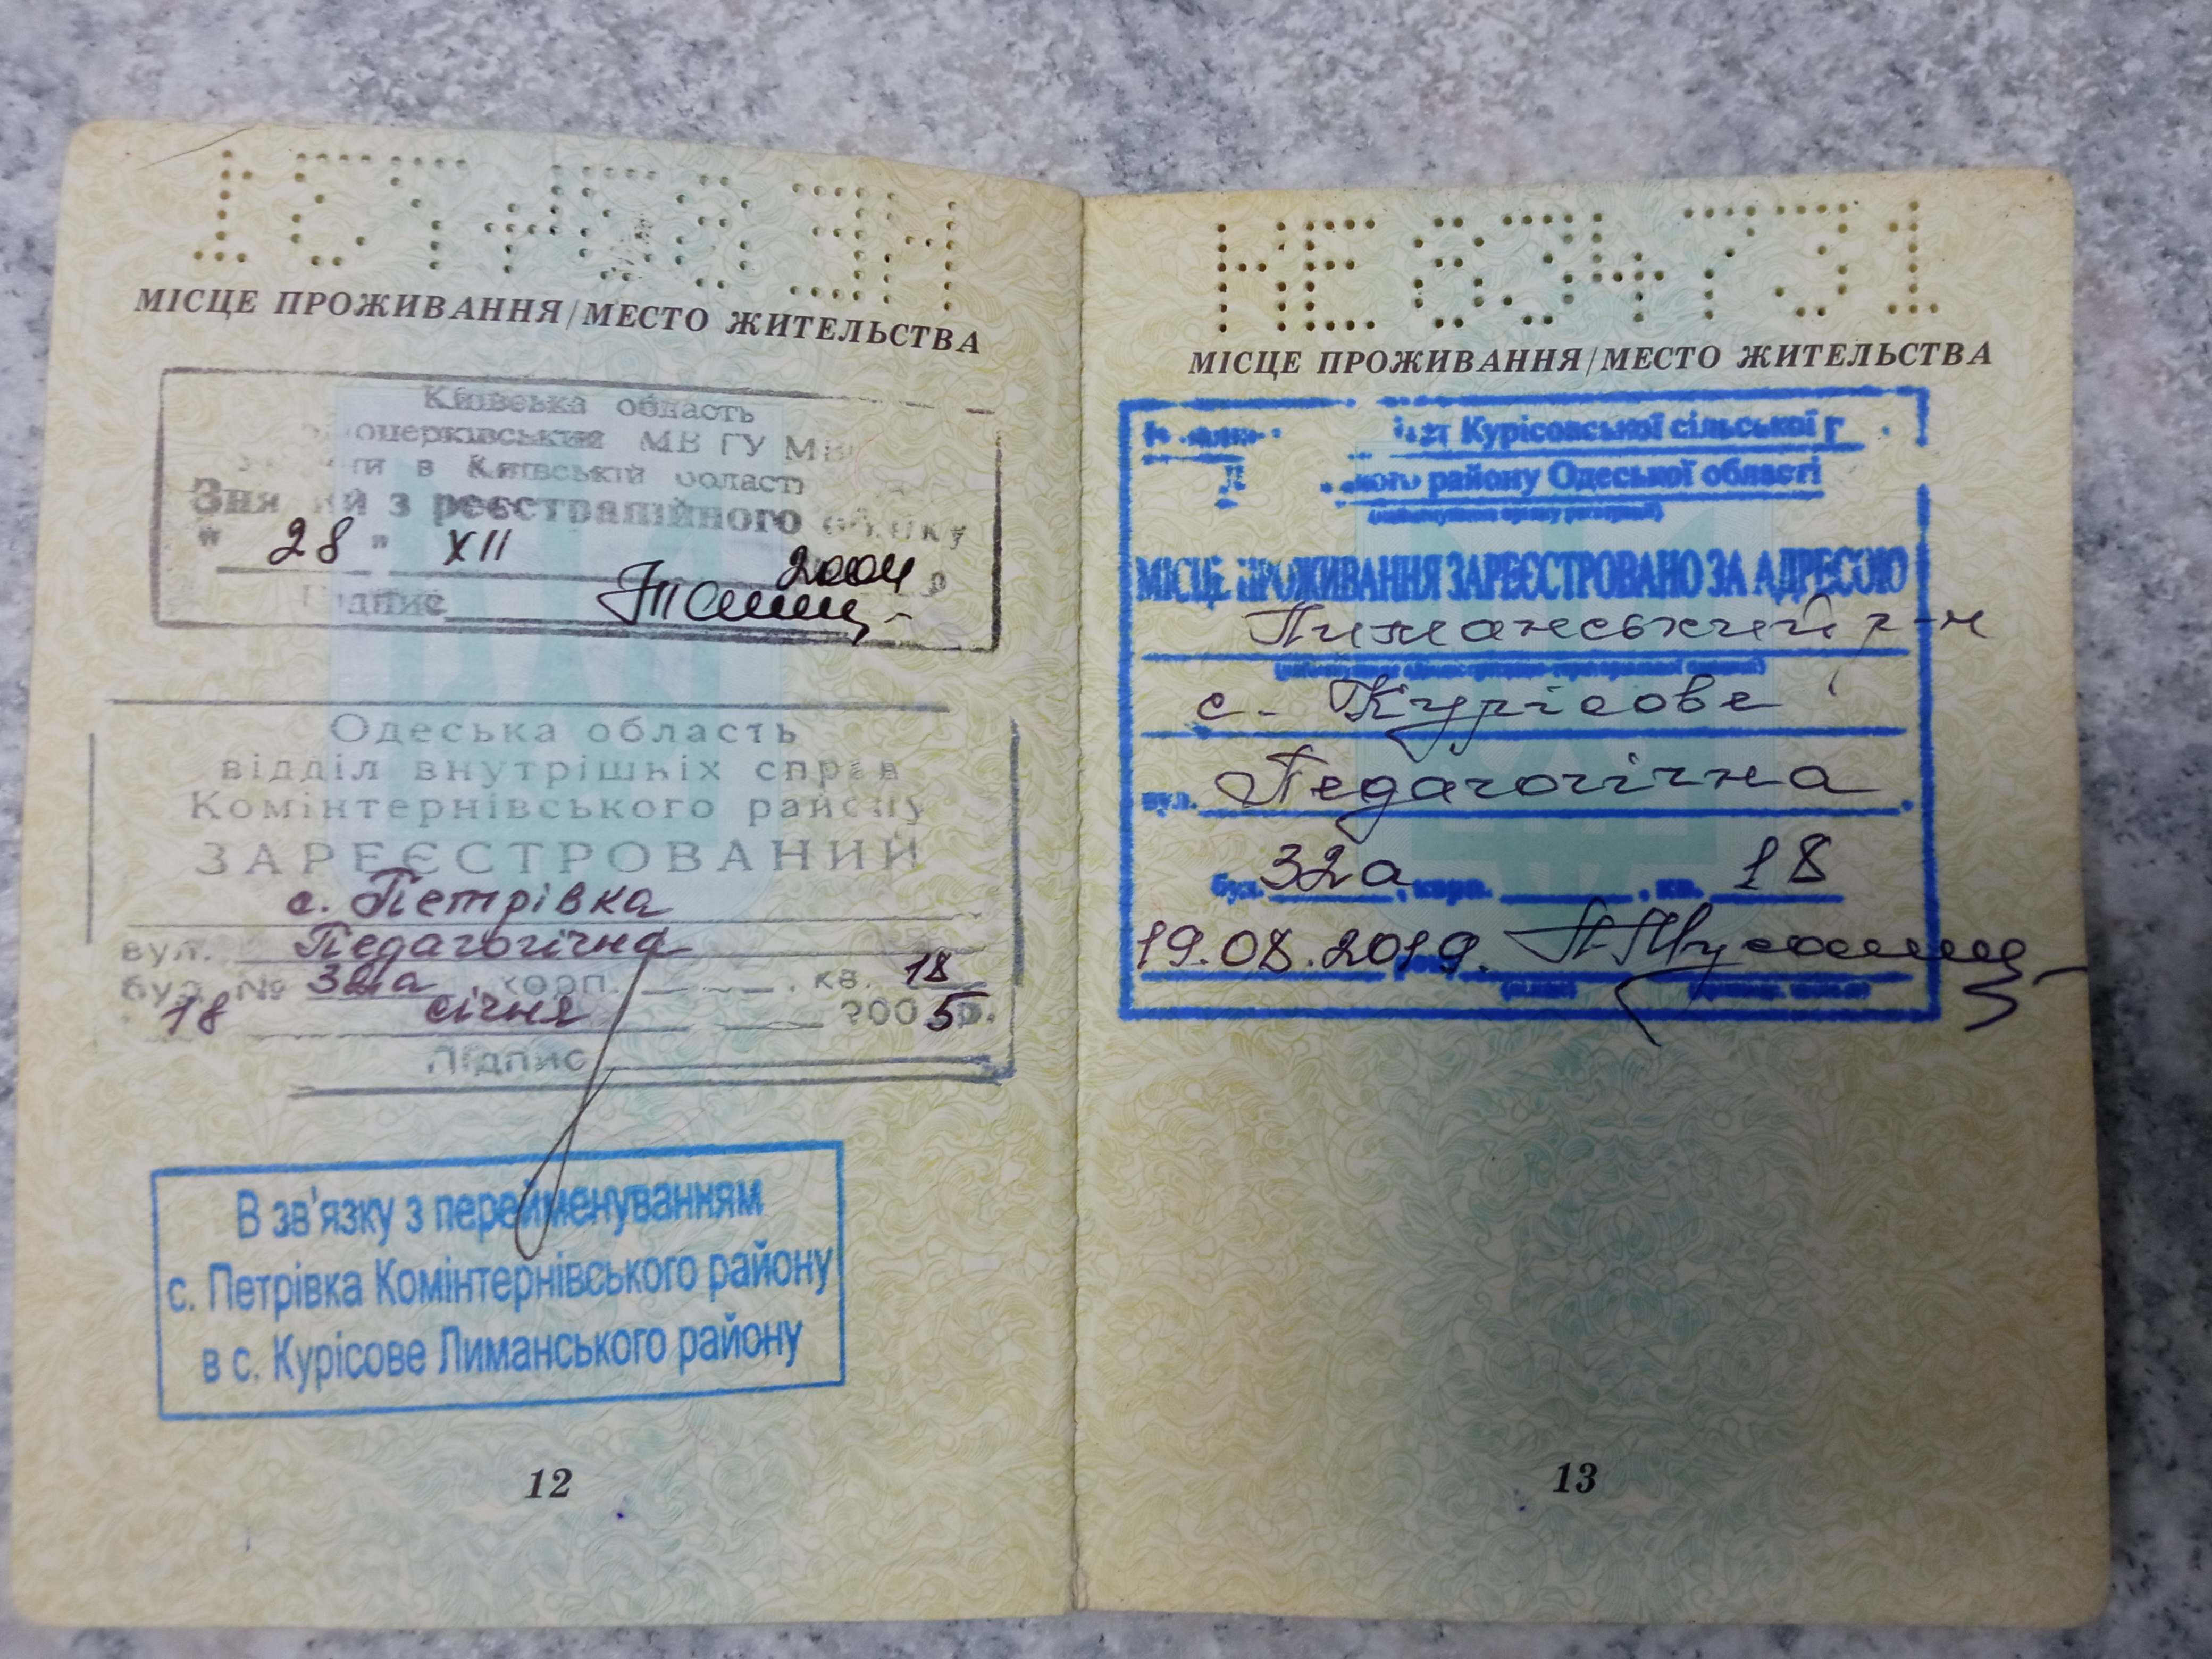 МІСЦЕ ПРОЖИВАННЯ/МЕСТО ЖИТЕЛЬСТВА
Київська область
МВ ГУ
в Київській області
з реєстраційного обліку
" 28 " XII 2004 р
Підпис
Одеська область
відділ внутрішніх справ
Комінтернівського району
ЗАРЕЄСТРОВАНИЙ
с. Петрівка
вул. Педагогічна
буд. № 32а корп. кв. 18
18 січня 2005 р.
Підпис
В зв'язку з перейменуванням
с. Петрівка Комінтернівського району
в с. Курісове Лиманського району
12
НЕ 834731
МІСЦЕ ПРОЖИВАННЯ/МЕСТО ЖИТЕЛЬСТВА
Курісовської сільської
району Одеської області
МІСЦЕ ПРОЖИВАННЯ ЗАРЕЄСТРОВАНО ЗА АДРЕСОЮ
Лиманський р-н
с. Курісове
вул. Педагогічна
буд. 32а, корп. , кв. 18
19.08.2019.
13